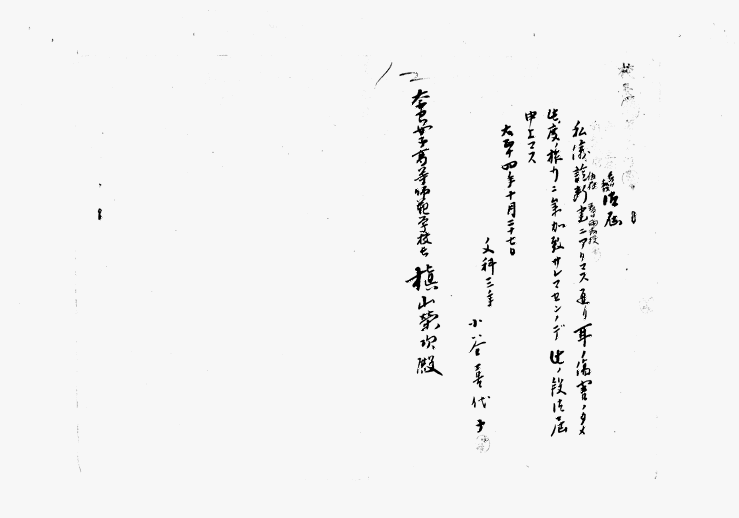 御届
私儀診断書ニアリマス通リ耳ノ傷害ノタメ
此度ノ旅行ニ参加致サレマセンノデ此ノ段御届
申上マス
大正十四年十月二十七日
文科三年
小谷喜代子
奈良女子高等師範学校長
槇山栄次殿